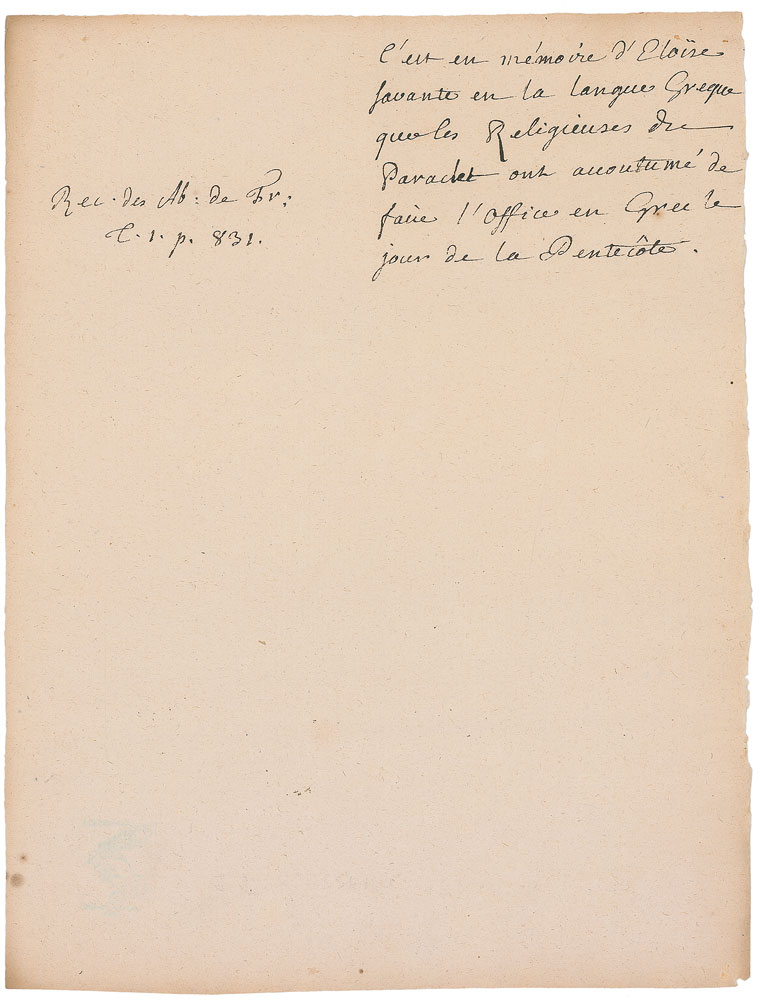 C'est en mémoire d'Eloïse
savante en la langue Greque
que les Religieuses du
Paraclet ont acoutumé de
faire l'Office en Grec le
jour de la Pentecôte.
Rec. des Ab: de Fr:
T. 1. p. 831.